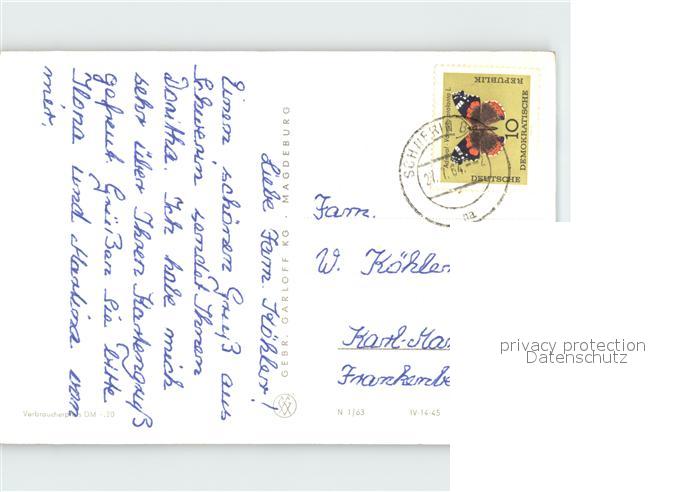 Liebe Fam. Köhler!
Einen schönen Gruß aus
Schwerin sendet Ihnen
Donitha. Ich habe mich
sehr über Ihren Kartengruß
gefreut. Grüßen Sie bitte
Ilona und Martina von
mir.
GEBR. GARLOFF KG · MAGDEBURG
DEUTSCHE
DEMOKRATISCHE
REPUBLIK
10
Admiral
SCHWERIN
Fam.
W. Köhler
Karl-Mar
Frankenbe
privacy protection
Datenschutz
Verbraucherpreis DM -.20
N 1/63
IV-14-45